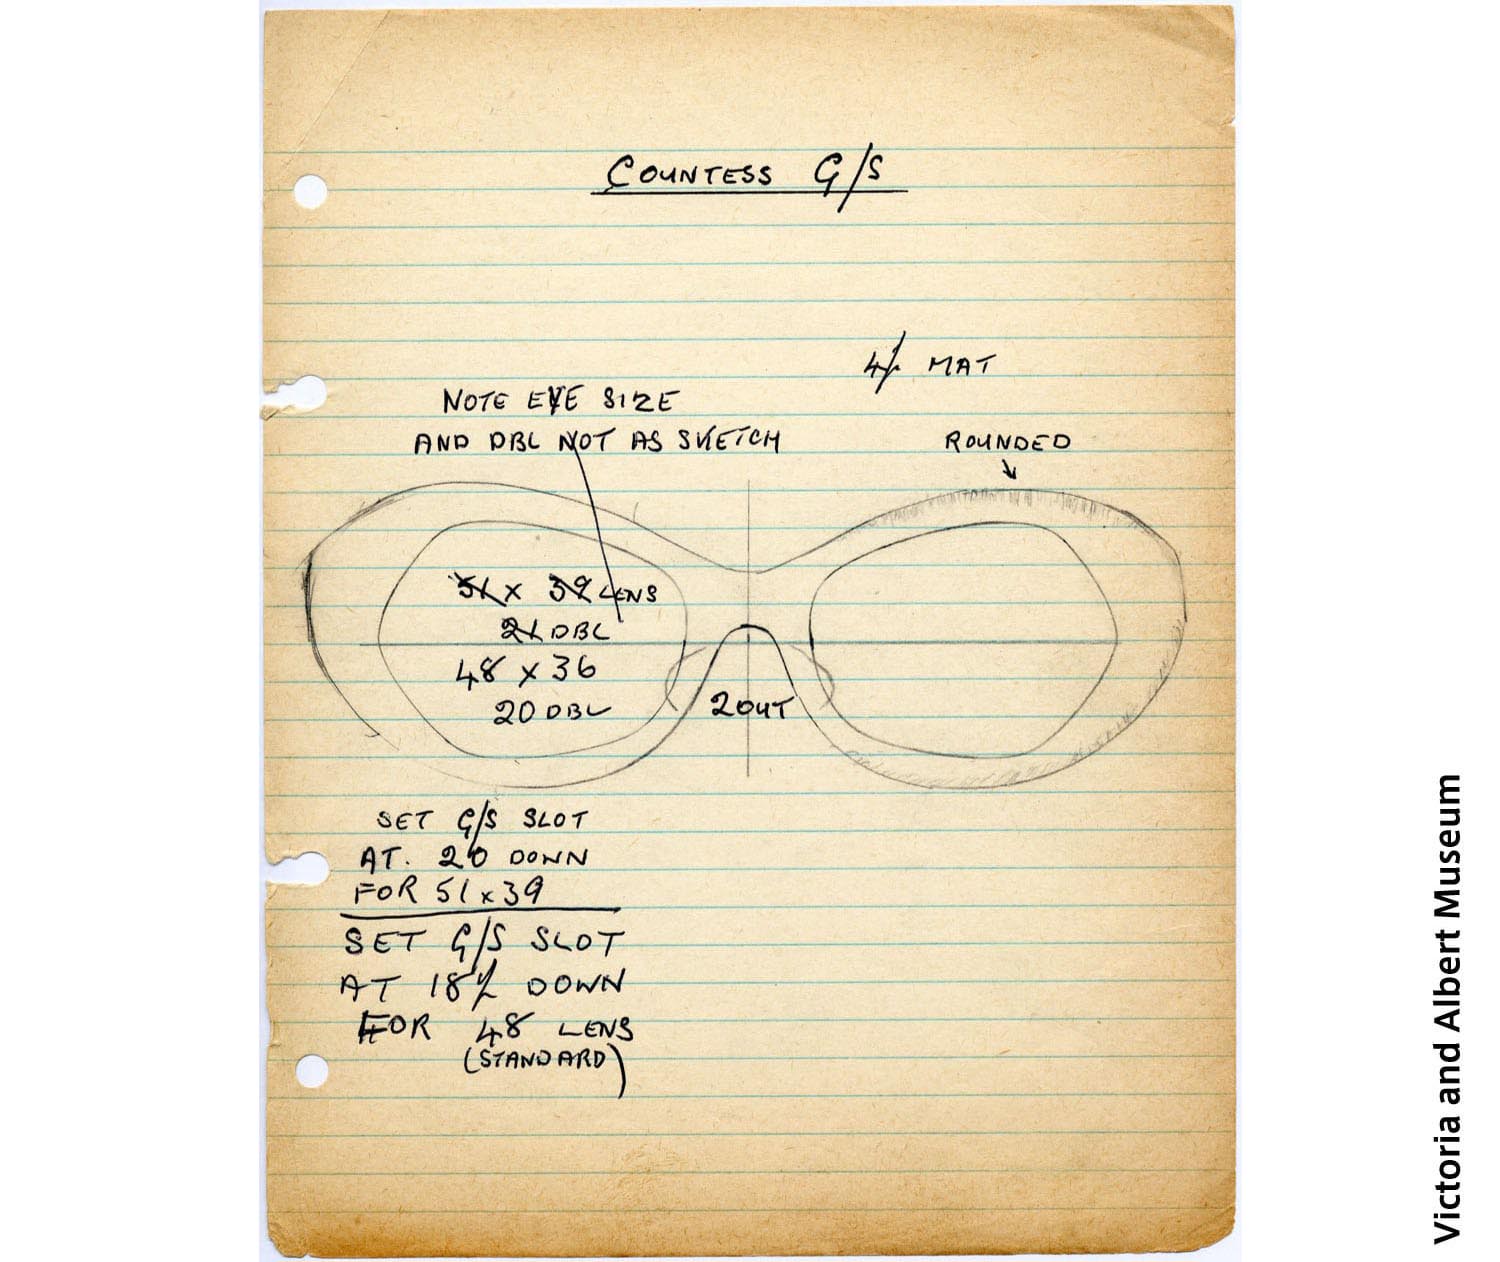 COUNTESS G/S
4/- MAT
NOTE EYE SIZE
AND DBL NOT AS SKETCH
ROUNDED
51 x 39 LENS
21 DBL
48 x 36
20 DBL
2 OUT
SET G/S SLOT
AT. 20 DOWN
FOR 51 x 39
SET G/S SLOT
AT 18½ DOWN
FOR 48 LENS
(STANDARD)
Victoria and Albert Museum